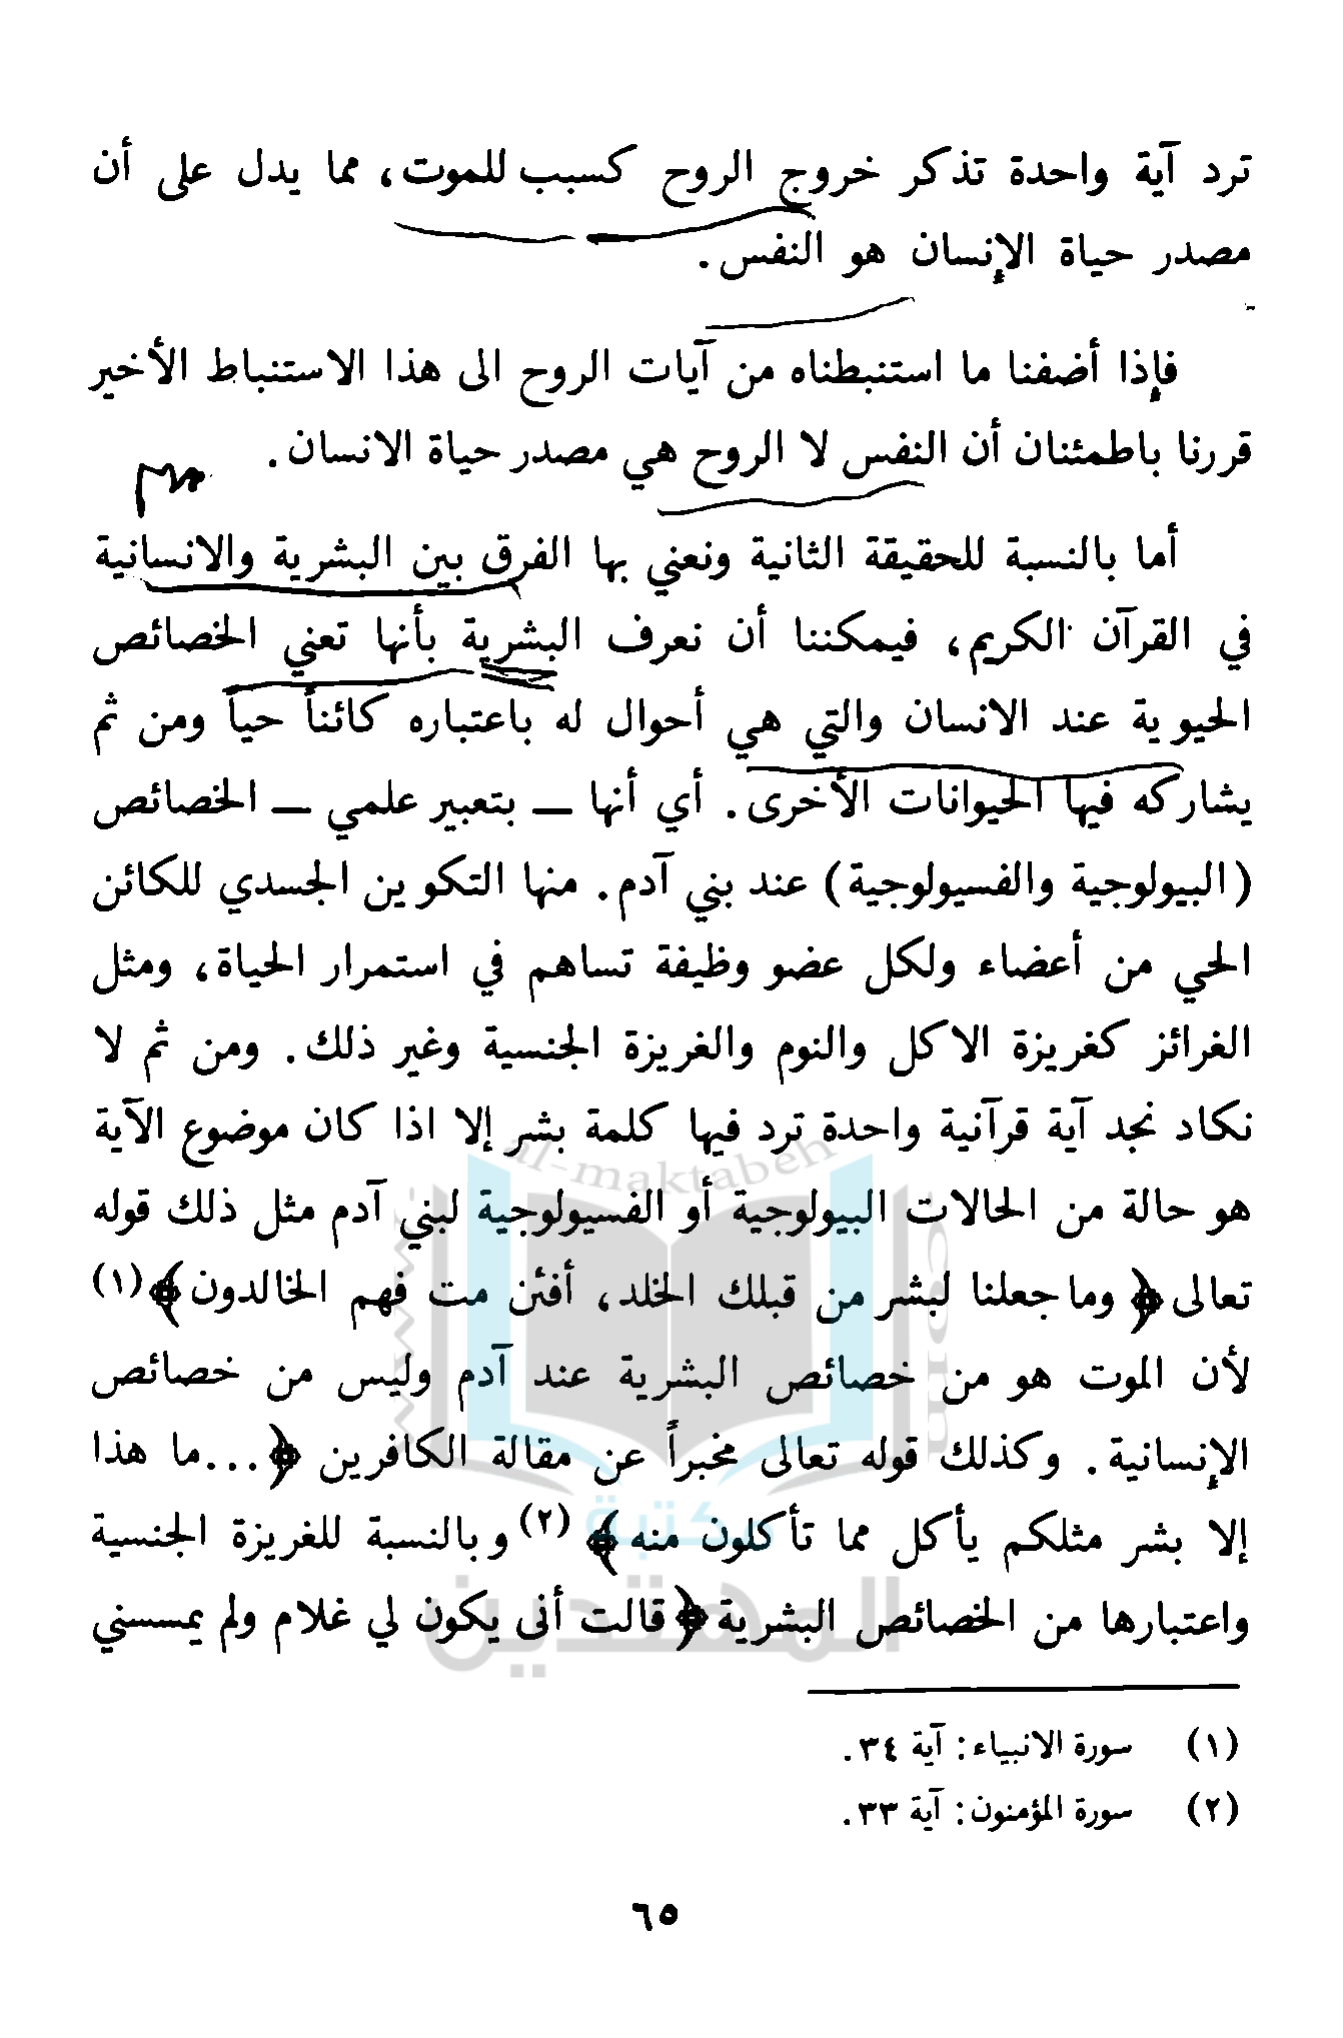 ترد آية واحدة تذكر خروج الروح كسبب للموت، مما يدل على أن
مصدر حياة الإنسان هو النفس.
فإذا أضفنا ما استنبطناه من آيات الروح الى هذا الاستنباط الأخير
قررنا باطمئنان أن النفس لا الروح هي مصدر حياة الانسان.
مهم
أما بالنسبة للحقيقة الثانية ونعني بها الفرق بين البشرية والانسانية
في القرآن الكريم، فيمكننا أن نعرف البشرية بأنها تعني الخصائص
الحيوية عند الانسان والتي هي أحوال له باعتباره كائناً حياً ومن ثم
يشاركه فيها الحيوانات الأخرى. أي أنها — بتعبير علمي — الخصائص
(البيولوجية والفسيولوجية) عند بني آدم. منها التكوين الجسدي للكائن
الحي من أعضاء ولكل عضو وظيفة تساهم في استمرار الحياة، ومثل
الغرائز كغريزة الاكل والنوم والغريزة الجنسية وغير ذلك. ومن ثم لا
نكاد نجد آية قرآنية واحدة ترد فيها كلمة بشر إلا اذا كان موضوع الآية
هو حالة من الحالات البيولوجية أو الفسيولوجية لبني آدم مثل ذلك قوله
تعالى ﴿وما جعلنا لبشر من قبلك الخلد، أفئن مت فهم الخالدون﴾(١)
لأن الموت هو من خصائص البشرية عند آدم وليس من خصائص
الإنسانية. وكذلك قوله تعالى مخبراً عن مقالة الكافرين ﴿...ما هذا
إلا بشر مثلكم يأكل مما تأكلون منه﴾(٢) وبالنسبة للغريزة الجنسية
واعتبارها من الخصائص البشرية ﴿قالت أنى يكون لي غلام ولم يمسسني
(١) سورة الانبياء: آية ٣٤.
(٢) سورة المؤمنون: آية ٣٣.
٦٥
al-maktabeh
.com
مكتبة
المهتدين